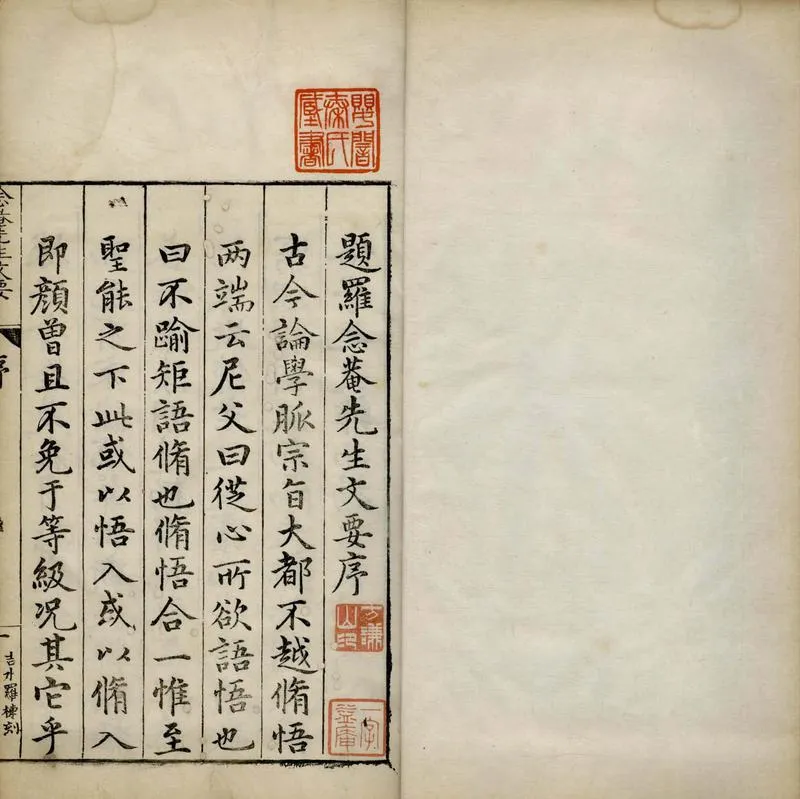 題羅念菴先生文要序
古今論學脈宗旨大都不越脩悟
两端云尼父曰從心所欲語悟也
曰不踰矩語脩也脩悟合一惟至
聖能之下此或以悟入或以脩入
即顔曾且不免于等級况其它乎
念菴先生文要
序
吉水羅棟刻